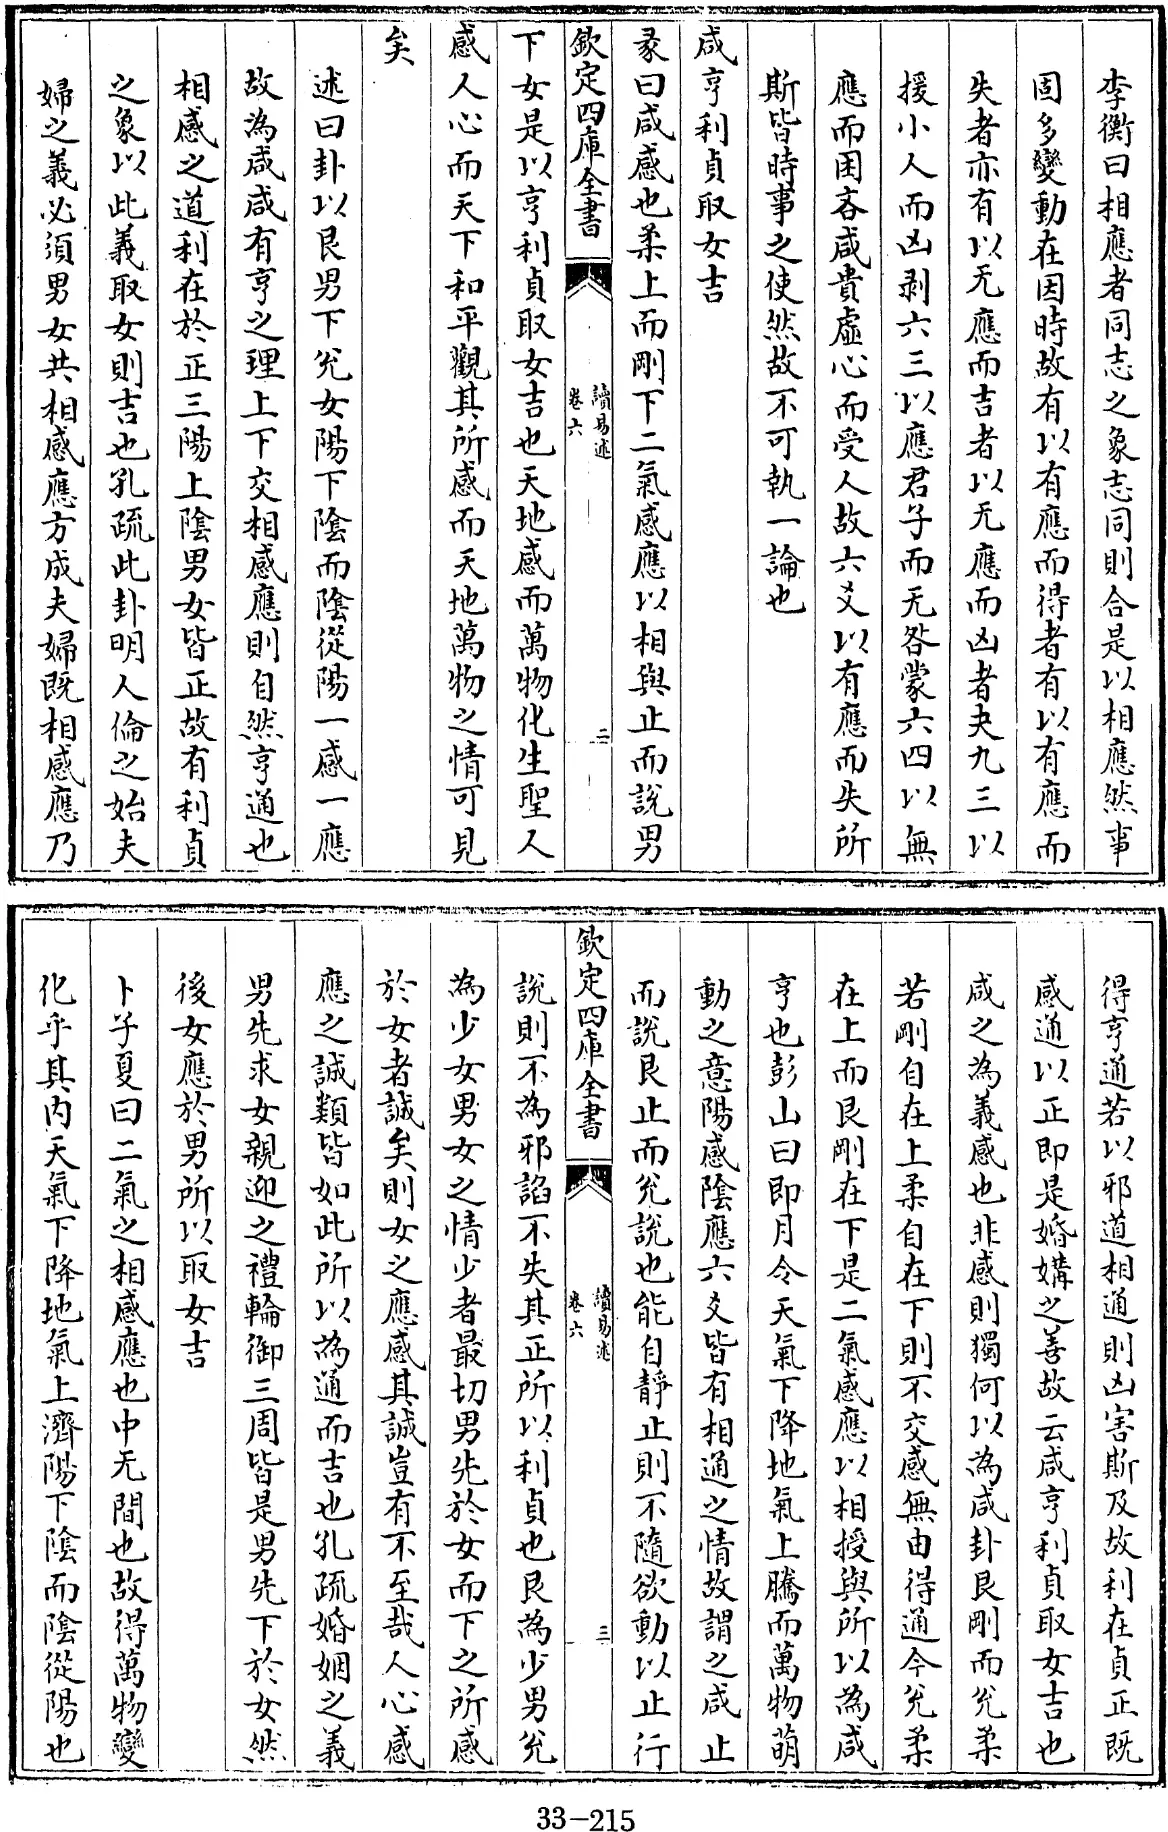 李衡曰相應者同志之象志同則合是以相應然事
固多變動在因時故有以有應而得者有以有應而
失者亦有以无應而吉者以无應而凶者夬九三以
援小人而凶剥六三以應君子而无咎蒙六四以無
應而困吝咸貴虛心而受人故六爻以有應而失所
斯皆時事之使然故不可執一論也
咸亨利貞取女吉
彖曰咸感也柔上而剛下二氣感應以相與止而說男
欽定四庫全書
讀易述
卷六
二
下女是以亨利貞取女吉也天地感而萬物化生聖人
感人心而天下和平觀其所感而天地萬物之情可見
矣
述曰卦以艮男下兊女陽下陰而陰從陽一感一應
故為咸咸有亨之理上下交相感應則自然亨通也
相感之道利在於正三陽上陰男女皆正故有利貞
之象以此義取女則吉也孔疏此卦明人倫之始夫
婦之義必須男女共相感應方成夫婦既相感應乃
得亨通若以邪道相通則凶害斯及故利在貞正既
感通以正即是婚媾之善故云咸亨利貞取女吉也
咸之為義感也非感則獨何以為咸卦艮剛而兊柔
若剛自在上柔自在下則不交感無由得通今兊柔
在上而艮剛在下是二氣感應以相授與所以為咸
亨也彭山曰即月令天氣下降地氣上騰而萬物萌
動之意陽感陰應六爻皆有相通之情故謂之咸止
而說艮止而兊說也能自靜止則不隨欲動以止行
欽定四庫全書
讀易述
卷六
三
說則不為邪諂不失其正所以利貞也艮為少男兊
為少女男女之情少者最切男先於女而下之所感
於女者誠矣則女之應感其誠豈有不至哉人心感
應之誠類皆如此所以為通而吉也孔疏婚姻之義
男先求女親迎之禮輪御三周皆是男先下於女然
後女應於男所以取女吉
卜子夏曰二氣之相感應也中无間也故得萬物變
化乎其内天氣下降地氣上濟陽下陰而陰從陽也
33-215